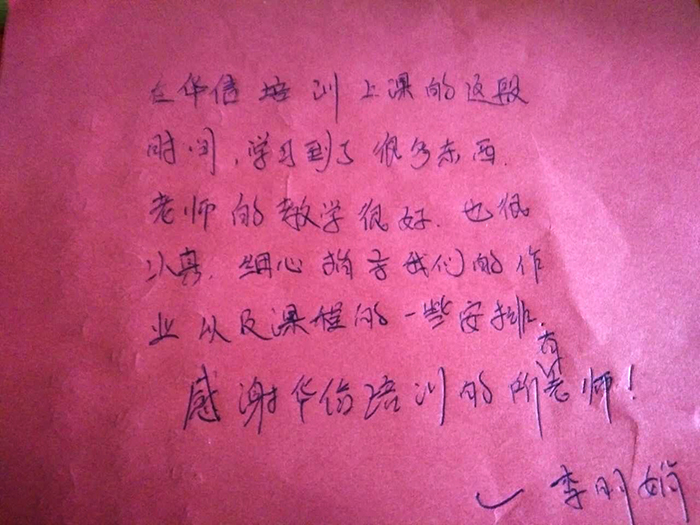 在华信培训上课的这段
时间，学习到了很多东西．
老师的教学很好．也很
认真．细心指导我们的作
业以及课程的一些安排．
感谢华信培训的所有老师！
李明娟